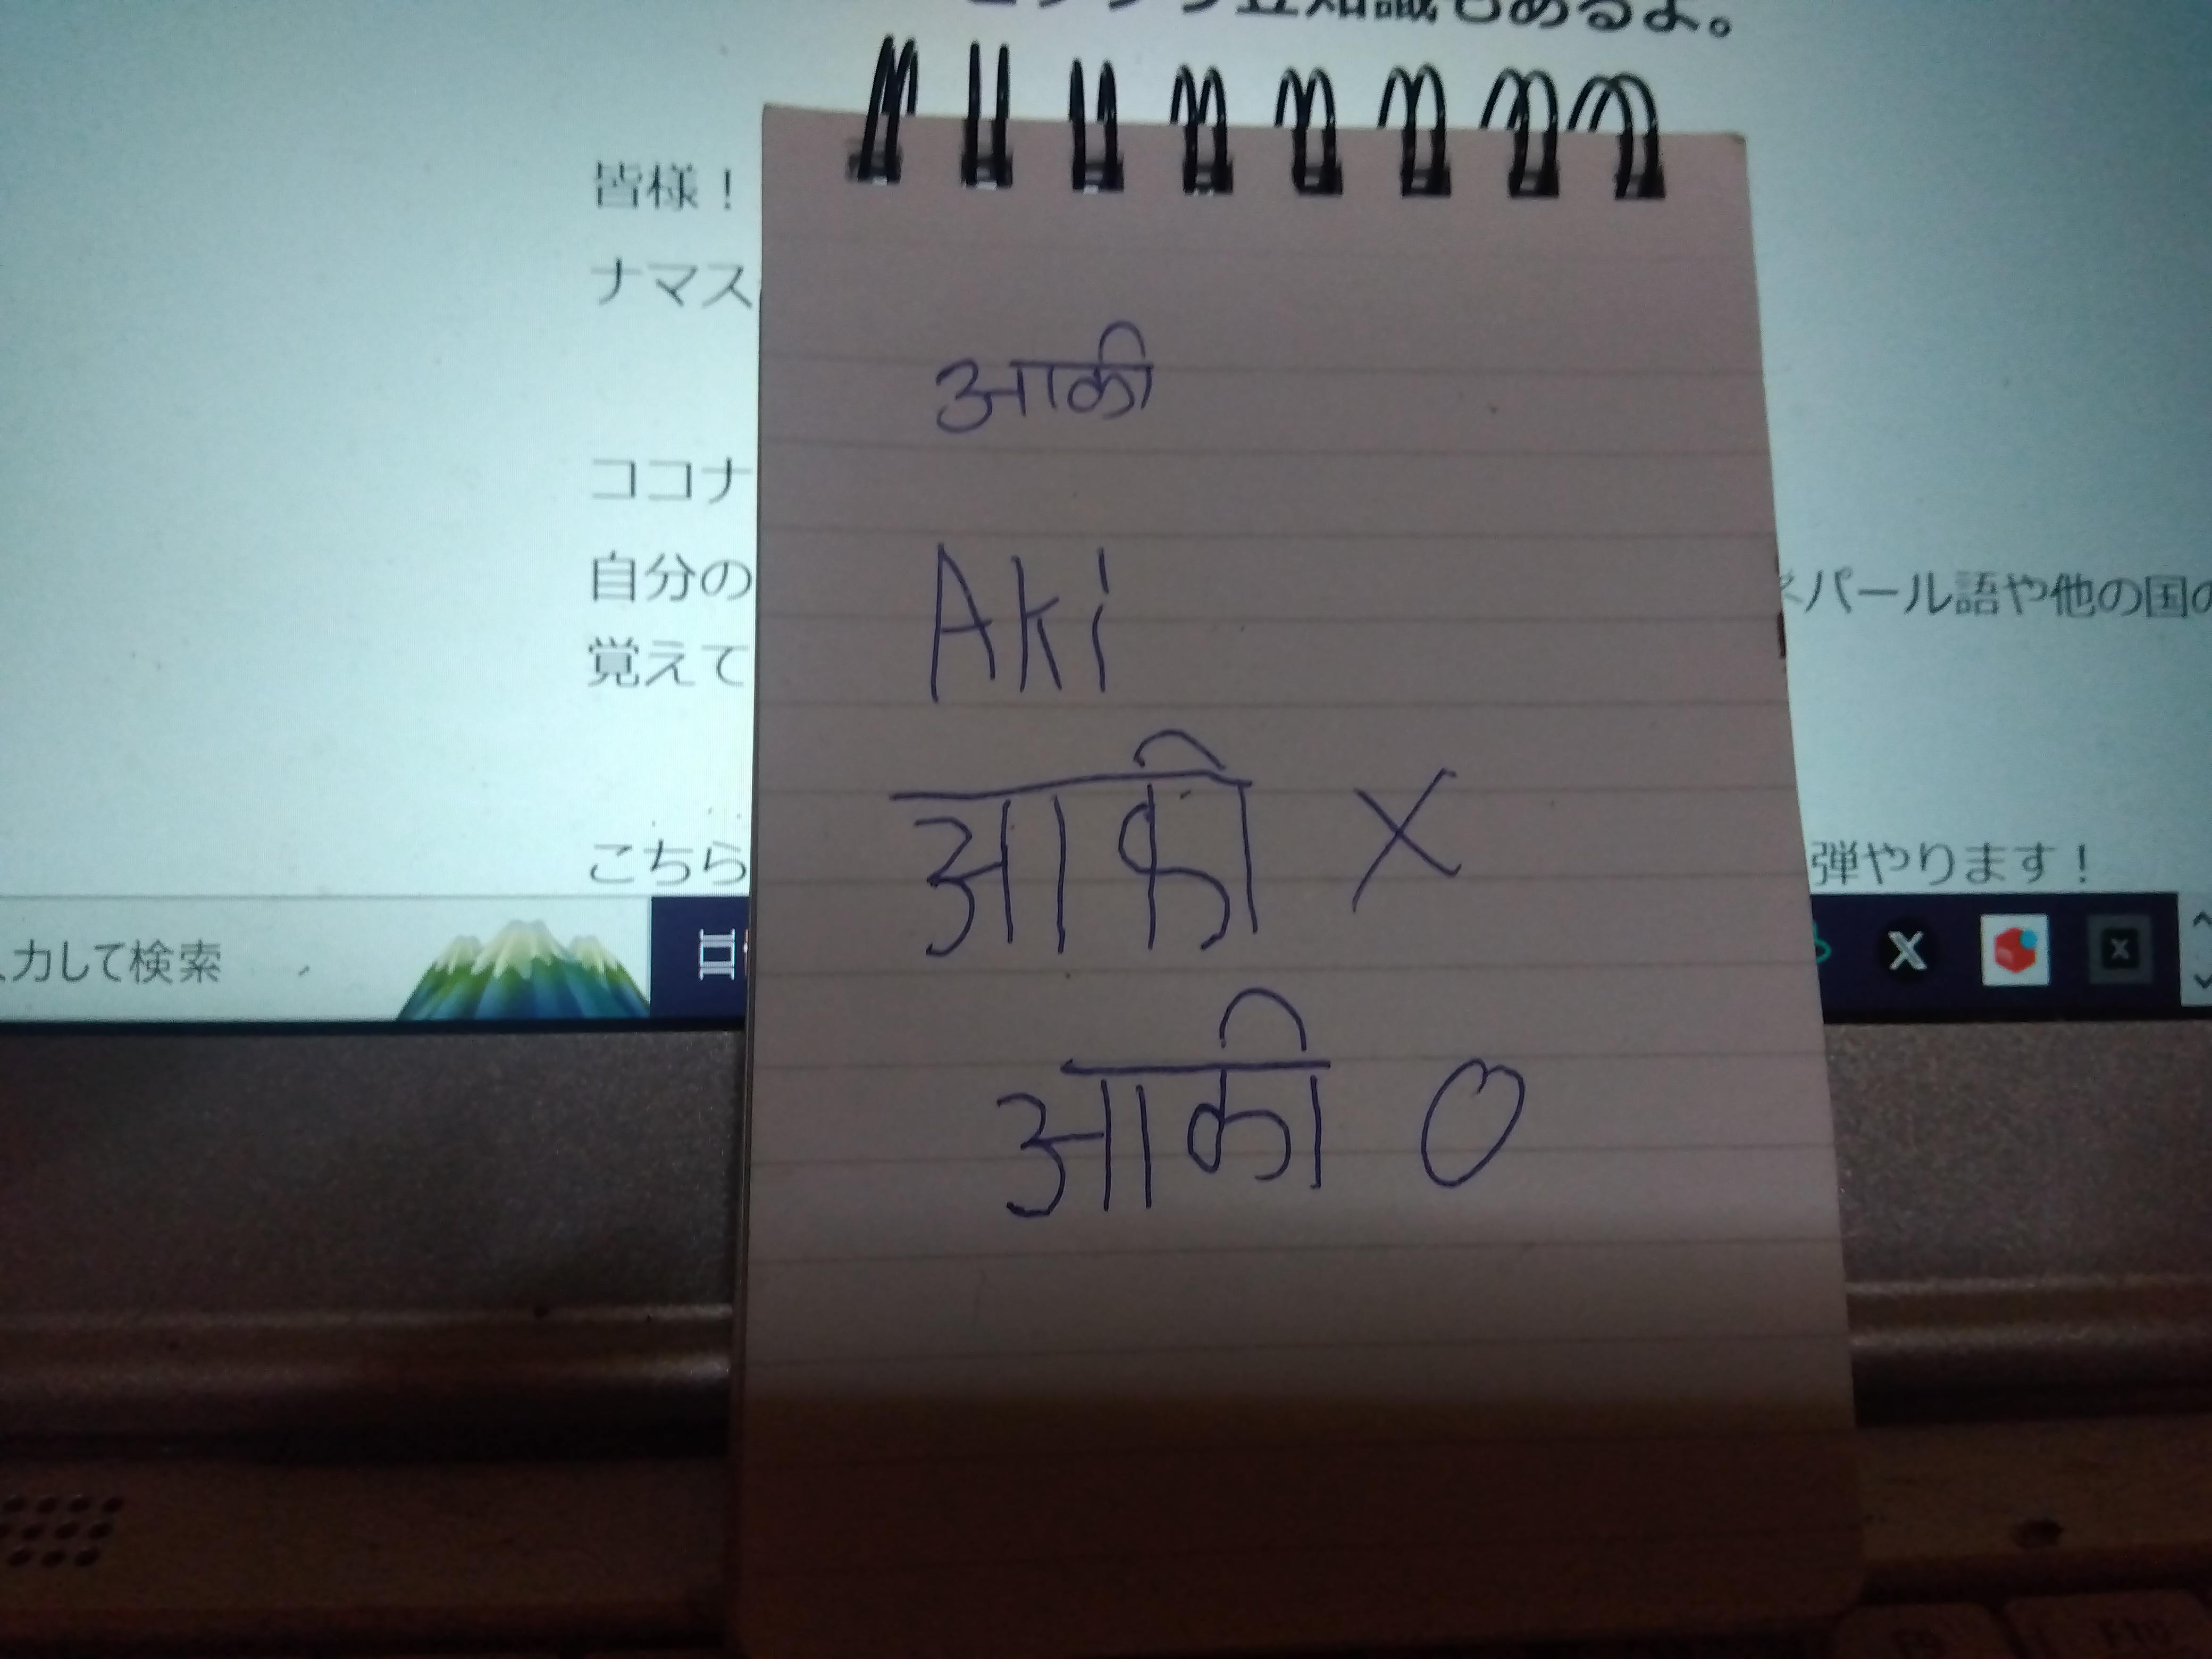 皆様！
ナマス
ココナ
自分の
覚えて
こちら
パール語や他の国の
弾やります！
力して検索
आकी
Aki
आकी X
आकी O
X
F9
F10